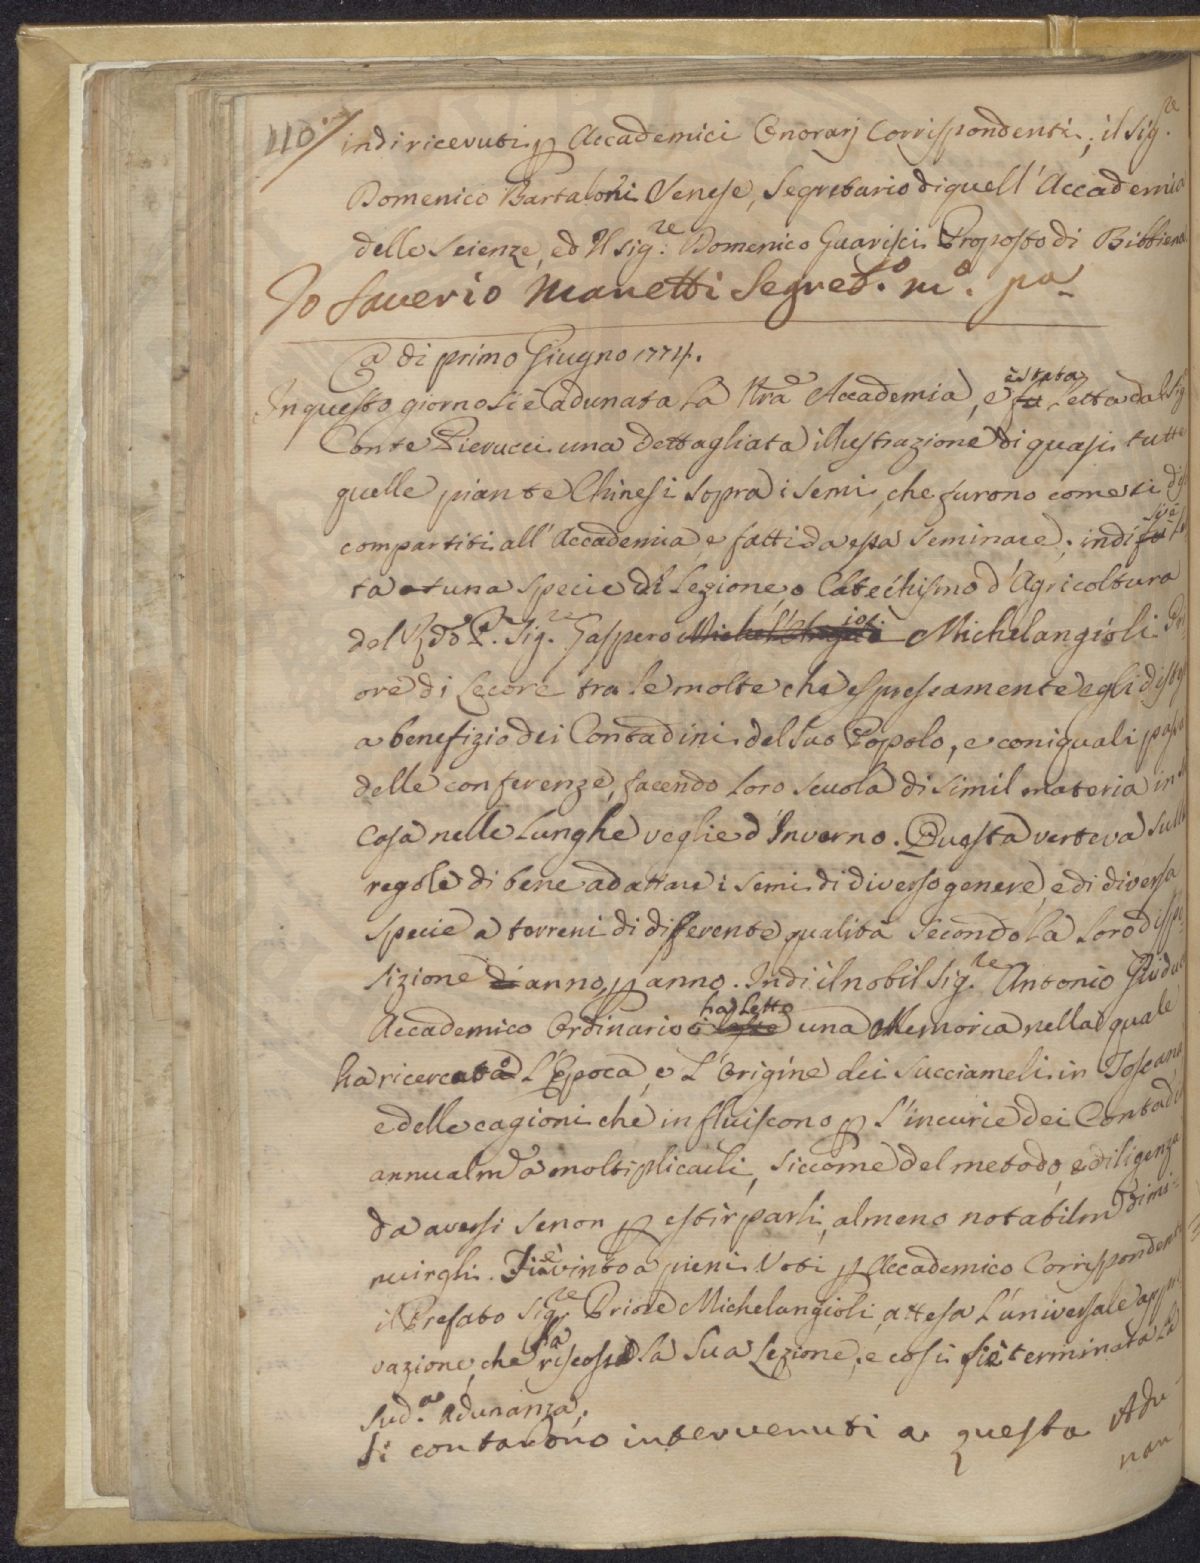 110./ indi ricevuti p Accademici Onorarj Corrispondenti; il Sig.re
Domenico Bartaloni Senese, Segretario di quell'Accademia
delle Scienze, ed Il Sig.re Domenico Guarisci Proposto di Bibbiena
Io Saverio Manetti Segret.o m.o pa
A dì primo Giugno 1774.
In questo giorno si è adunata la Nra Accademia, e fu è stata Letta dal Sig
Conte Pierucci una Dettagliata illustrazione di quasi tutte
quelle piante Chinesi sopra i semi, che furono come si di
compartiti all'Accademia e fatti da essa seminare; indi fu si è
ta una specie di Lezione, o Catechismo d'Agricoltura
del Rdo P. Sig.re Gaspero Michelangioli
ore di Lecore tra le molte che espressamente egli distese
a benefizio dei Contadini del suo Popolo, e coniquali passa
delle conferenze, facendo Loro scuola di simil materia in
Casa nelle Lunghe veglie d'Inverno. Questa verteva sulle
regole di bene adattare i semi di diverso genere, e di diversa
specie a terreni di differente qualità secondo la Loro dispo
sizione di anno p anno. Indi il nobil Sig.re Antonio
Accademico Ordinario ha Letto una Memoria nella quale
ha ricercato L'Epoca, e L'Origine dei Succiameli in Toscana
e delle cagioni che influiscono p L'incurie dei Contadi
annualm.e a moltiplicarli, siccome del metodo, e diligenza
da aversi se non p estirparli, almeno notabilm dimi-
nuirgli. Fu è vinto a pieni Voti p Accademico Corrispondente
il Prefato Sig.re Priore Michelangioli, attesa L'universale appro
vazione, che ha riscosso la Sua Lezione, e così si è terminata la
Sud.a Adunanza.
Si contarono intervenuti a questa Adu
nan